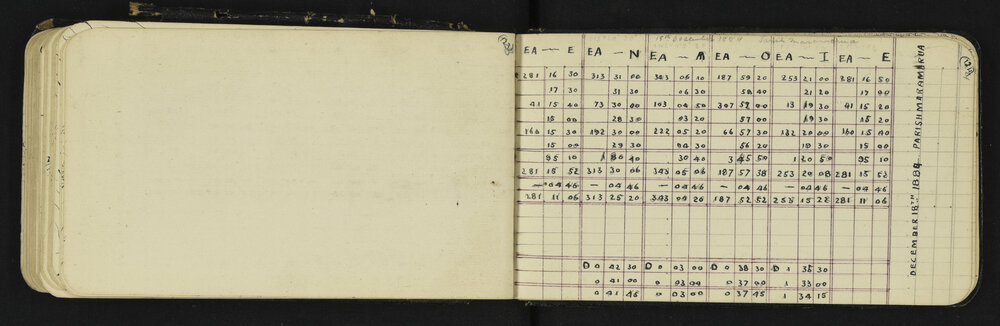 18th December 1884
EA — E EA — N EA — M EA — O EA — I EA — E
281 16 30 313 31 00 343 06 10 187 59 20 253 21 00 281 16 50
17 30 31 30 06 30 58 40 21 20 17 00
41 15 40 73 30 00 103 04 50 307 57 00 13 19 30 41 15 20
15 00 28 30 03 20 57 00 19 30 15 20
15 30 192 30 00 222 05 20 66 57 30 132 20 00 160 15 40
15 00 29 30 04 30 56 20 19 30 15 00
95 10 180 40 30 40 345 50 120 50 95 10
281 15 52 313 30 06 343 05 06 187 57 38 253 20 08 281 15 52
— 04 46 — 04 46 — 04 46 — 04 46 — 04 46 — 04 46
281 11 06 313 25 20 343 00 20 187 52 52 253 15 22 281 11 06
D 0 42 30 D 0 03 00 D 0 38 30 D 1 35 30
0 41 00 0 03 00 0 37 00 1 33 00
0 41 45 0 03 00 0 37 45 1 34 15
DECEMBER 18TH 1884 PARISH MARAMARUA